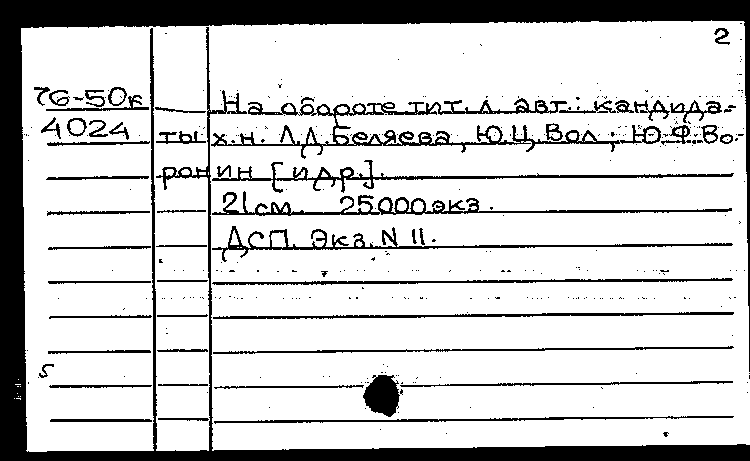 2
76-50к На обороте тит. л. авт.: кандида-
4024 ты х.н. Л.Д.Беляева, Ю.Ц.Вол ; Ю.Ф.Во-
ронин [и др.].
21см. 25000экз.
ДСП. Экз. N 11.
5